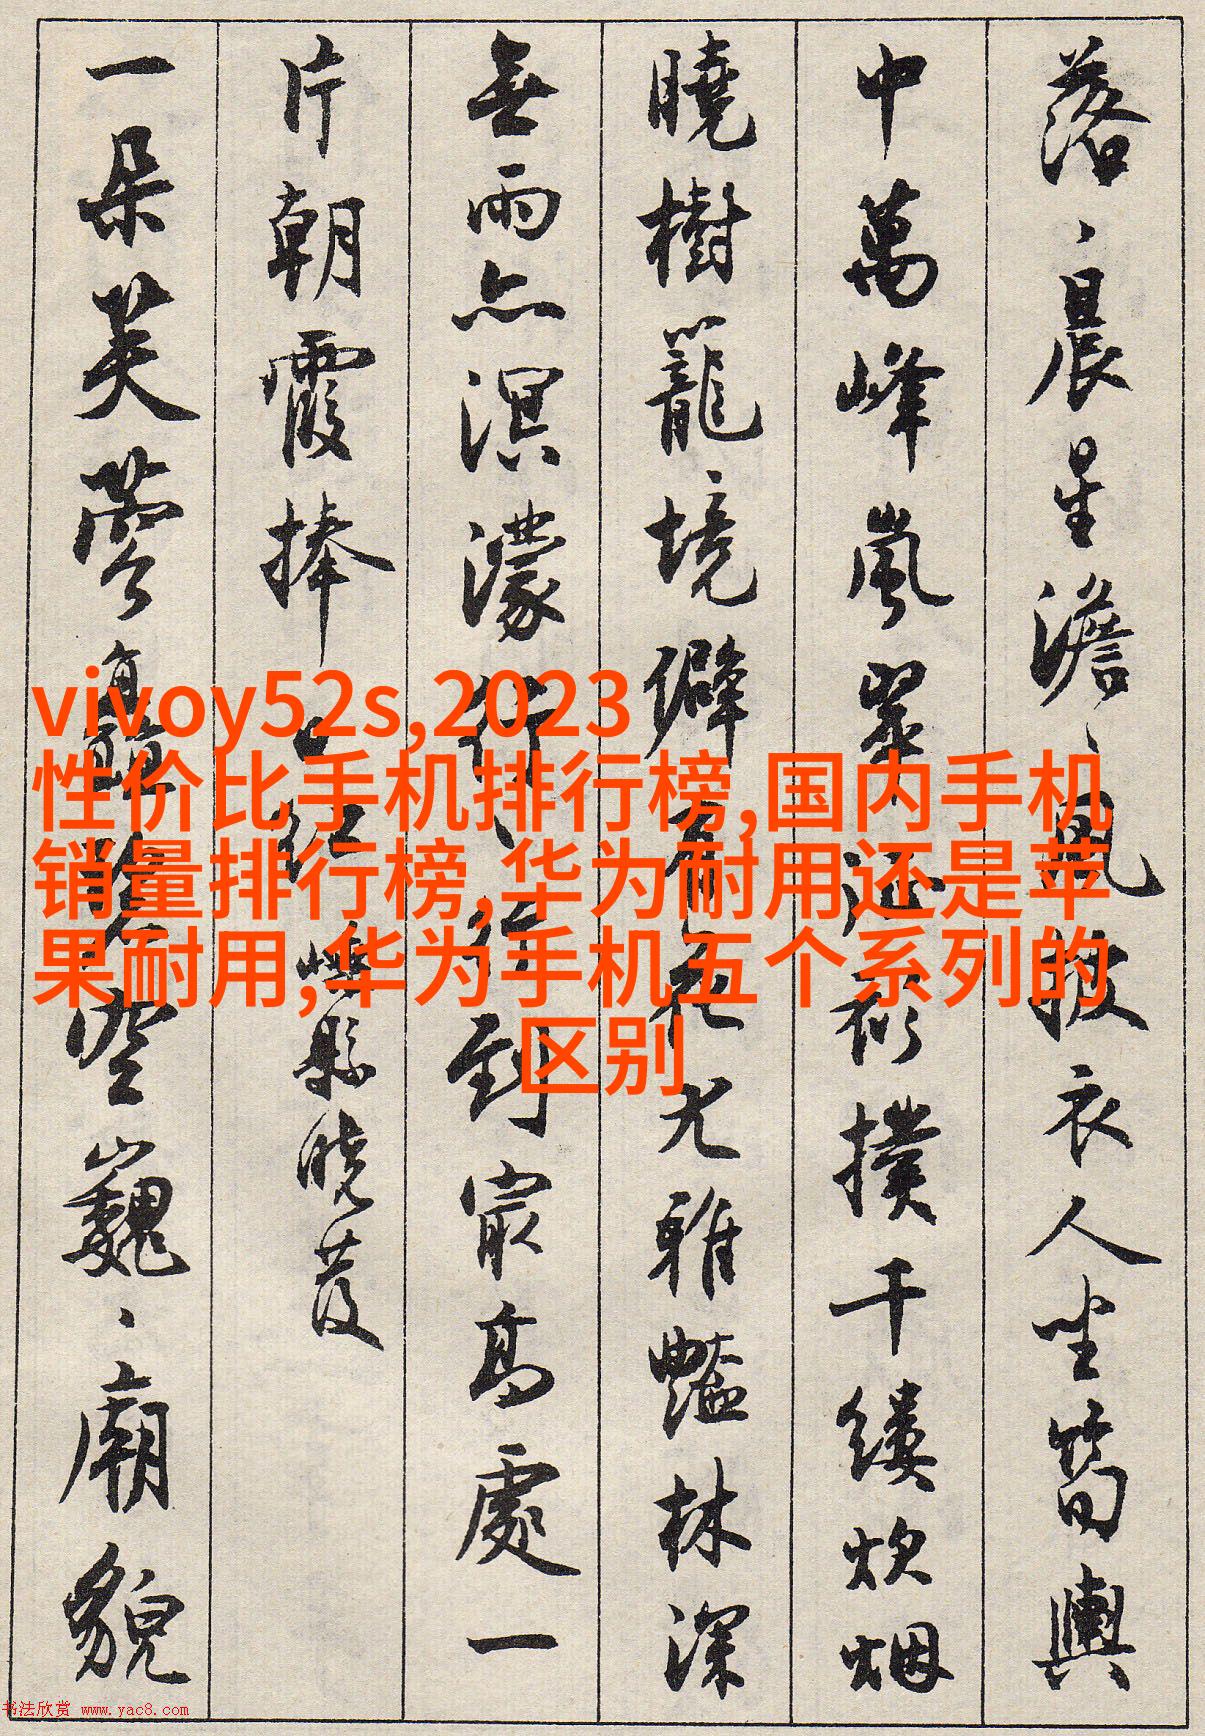 落、晨星澹、風披衣人坐筍輿
中萬峰嵐翠征衫撲千縷炊烟
曉樹籠境僻花尤雅豔林深
無雨亦溟濛行、行到最高處一
片朝霞捧日紅 嵊縣曉發
一朵芙蓉空巍、廟貌
vivoy52s,2023
性价比手机排行榜,国内手机
销量排行榜,华为耐用还是苹
果耐用,华为手机五个系列的
区别
书法欣赏 www.yac8.com